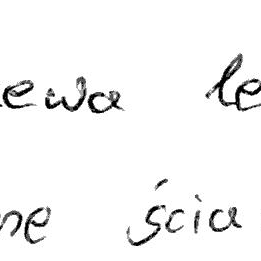 ewa le
ne ścia